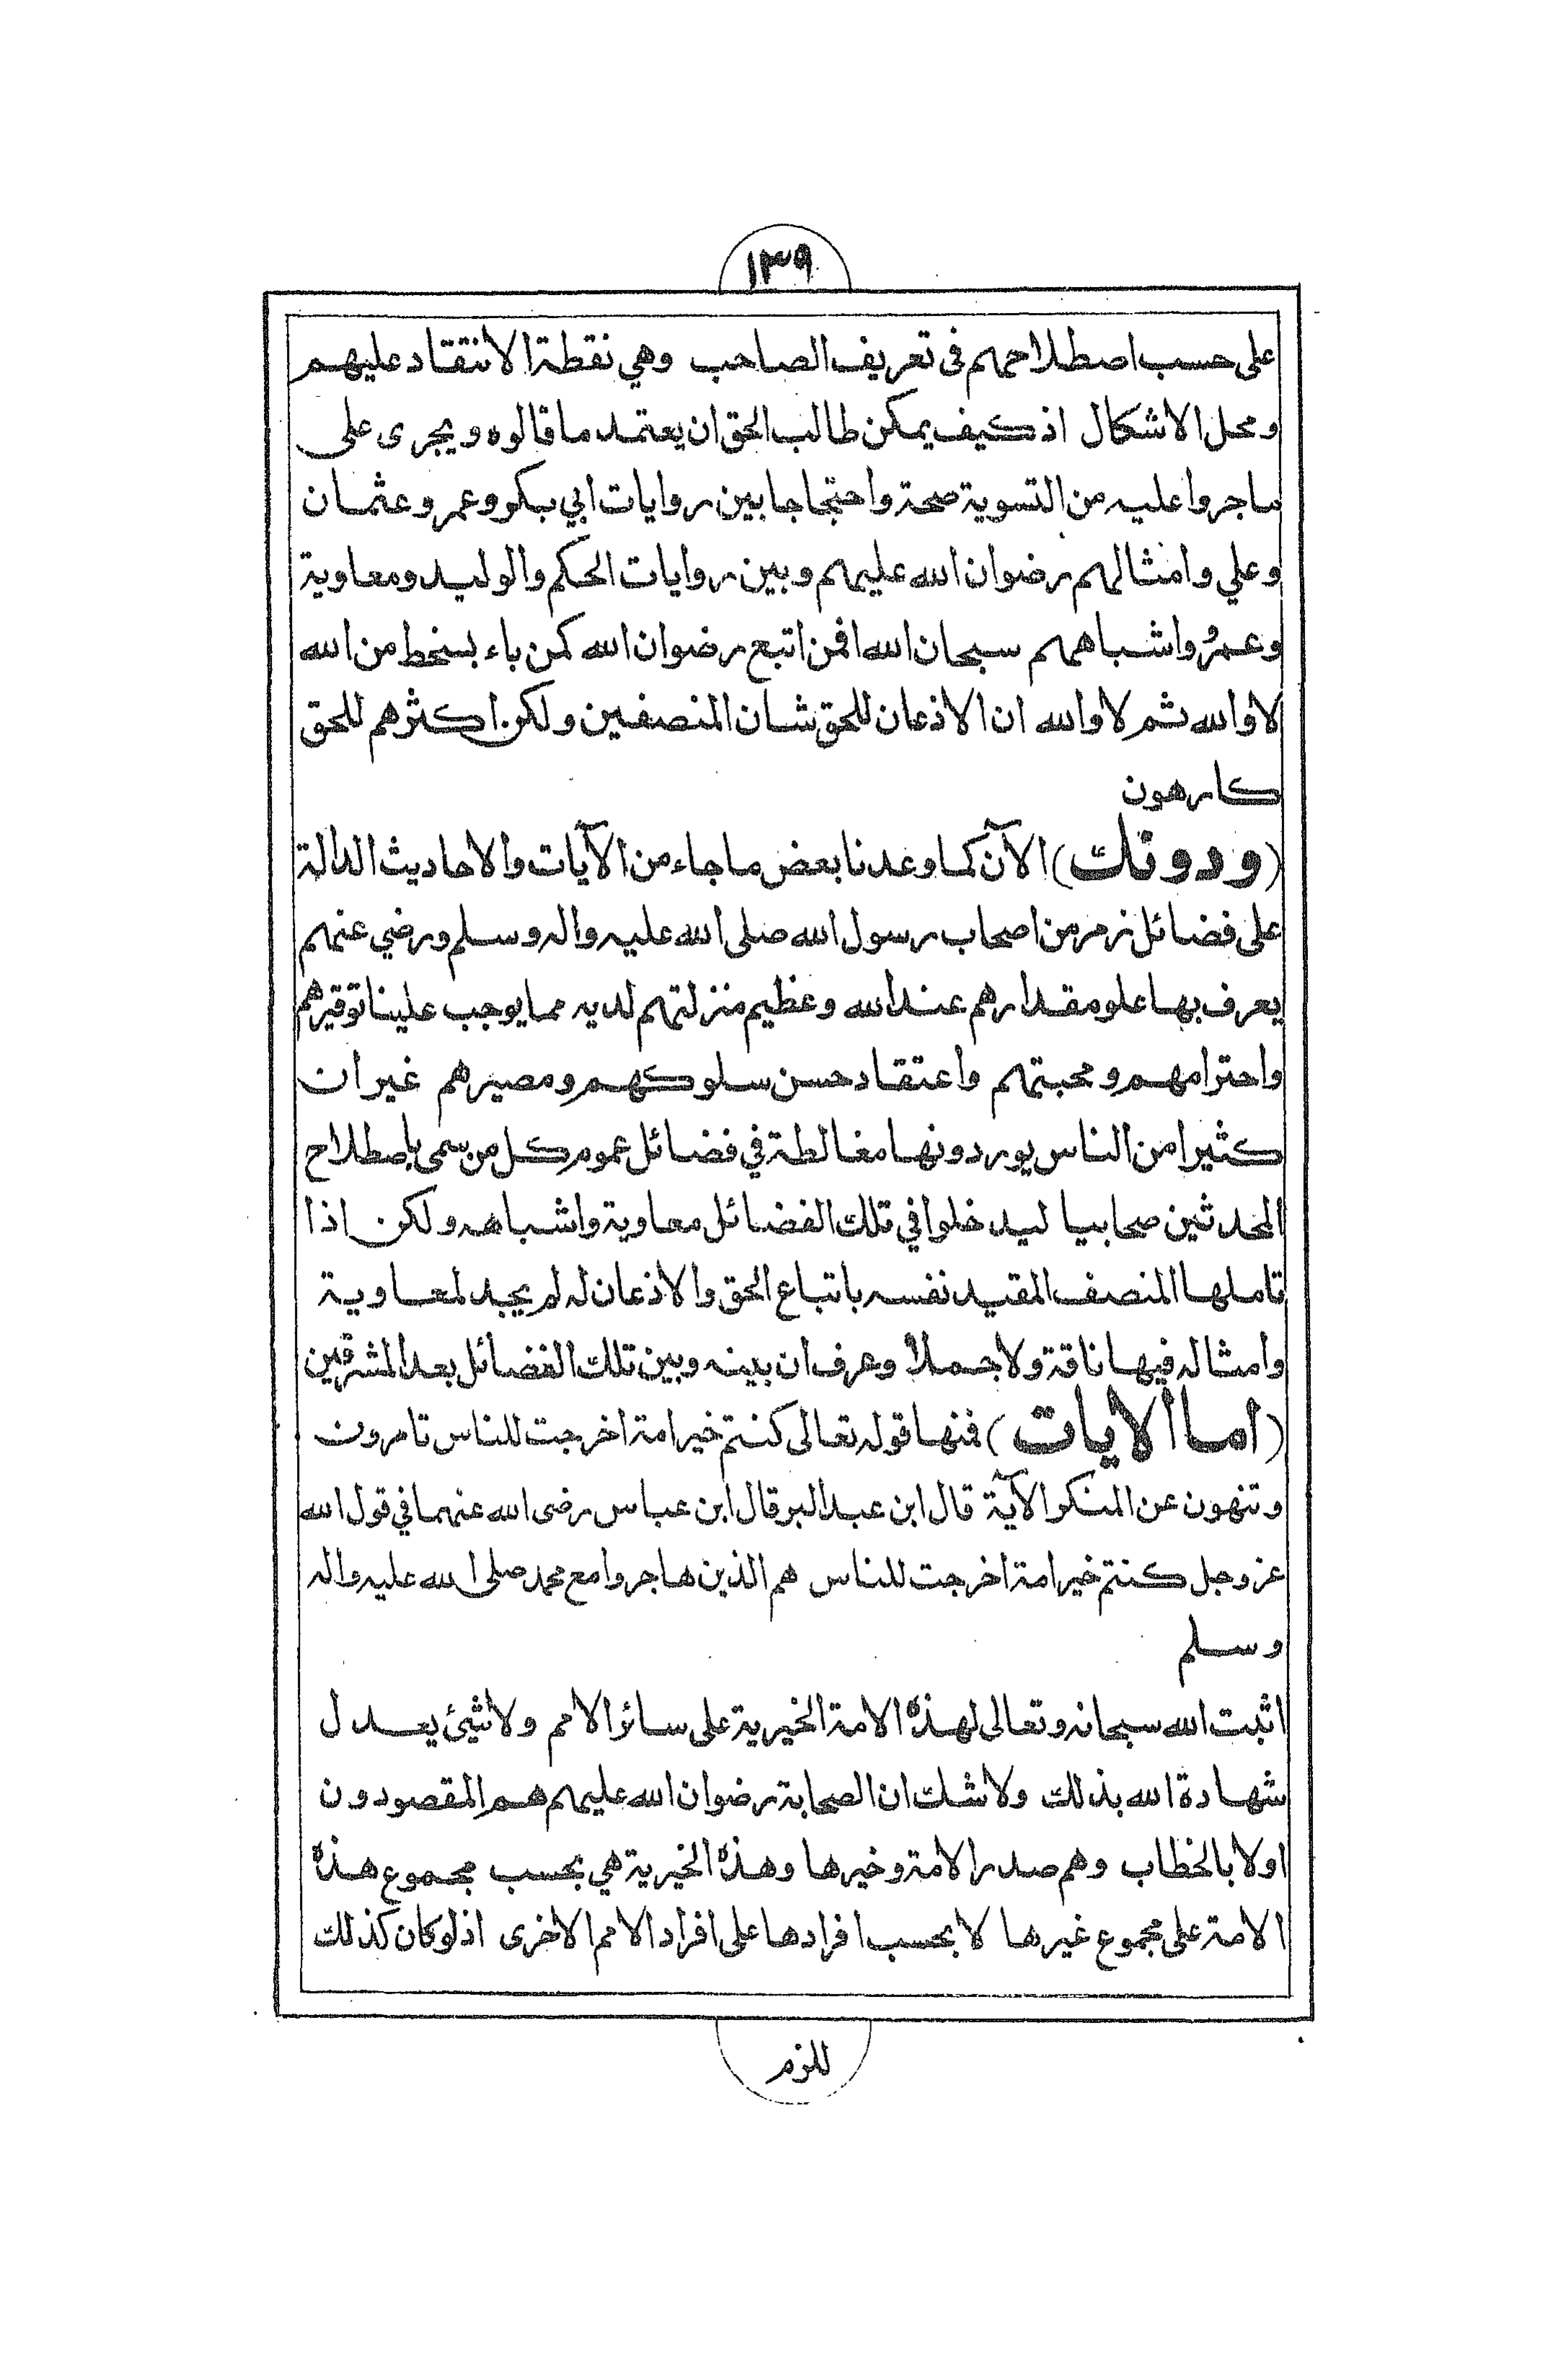 ١٣٩
على حسب اصطلاحهم فى تعريف الصاحب وهي نقطة الانتقاد عليهم
ومحل الاشكال اذ كيف يمكن طالب الحق ان يعتمد ما قالوه ويجرى على
ما جروا عليه من التسوية صحة واحتجاجا بين روايات ابي بكر وعمر وعثمان
وعلي وامثالهم رضوان الله عليهم وبين روايات الحكم والوليد ومعاوية
وعمرُو اشباههم سبحان الله افمن اتبع رضوان الله كمن باء بسخط من الله
لا والله ثم لا والله ان الاذعان للحق شان المنصفين ولكن اكثرهم للحق
كارهون
(ودونك) الآن كما وعدنا بعض ما جاء من الآيات والاحاديث الدالة
على فضائل زمر من اصحاب رسول الله صلى الله عليه واله وسلم ورضي عنهم
يعرف بها علو مقدارهم عند الله وعظيم منزلتهم لديه مما يوجب علينا توقيرهم
واحترامهم ومحبتهم واعتقاد حسن سلوكهم ومصيرهم غير ان
كثيرا من الناس يوردونها مغالطة في فضائل عموم كل من سمى باصطلاح
المحدثين صحابيا ليدخلوا في تلك الفضائل معاوية واشباهه ولكن اذا
تاملها المنصف المقيد نفسه باتباع الحق والاذعان له لم يجد لمعاوية
وامثاله فيها ناقة ولا جملاً وعرف ان بينه وبين تلك الفضائل بعد المشرقين
(اما الايات) فمنها قوله تعالى كنتم خير امة اخرجت للناس تامرون
وتنهون عن المنكر الآية قال ابن عبد البر قال ابن عباس رضى الله عنهما في قول الله
عز وجل كنتم خير امة اخرجت للناس هم الذين هاجروا مع محمد صلى الله عليه واله
وسلم
اثبت الله سبحانه وتعالى لهذه الامة الخيرية على سائر الامم ولا شيئ يعدل
شهادة الله بذلك ولا شك ان الصحابة رضوان الله عليهم هم المقصودون
اولا بالخطاب وهم صدر الامة وخيرها وهذه الخيرية هي بحسب مجموع هذه
الامة على مجموع غيرها لا بحسب افرادها على افراد الامم الاخرى اذ لو كان كذلك
للزم